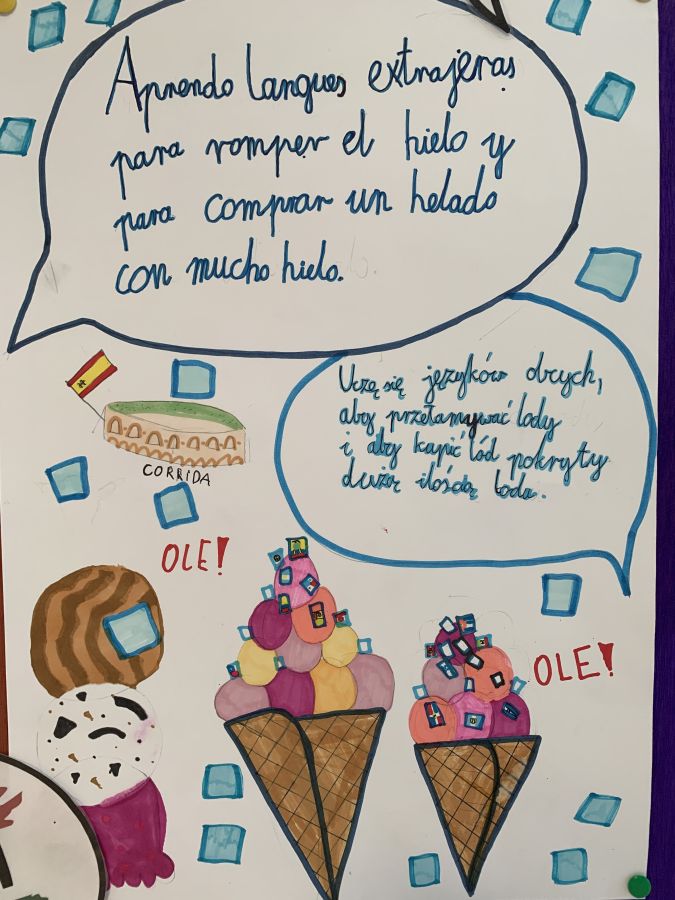 Aprendo langues extrajeras
para romper el hielo y
para comprar un helado
con mucho hielo.
Uczę się języków obcych,
aby przełamywać lody
i aby kupić lód pokryty
dużą ilością lodu.
CORRIDA
OLE!
OLE!